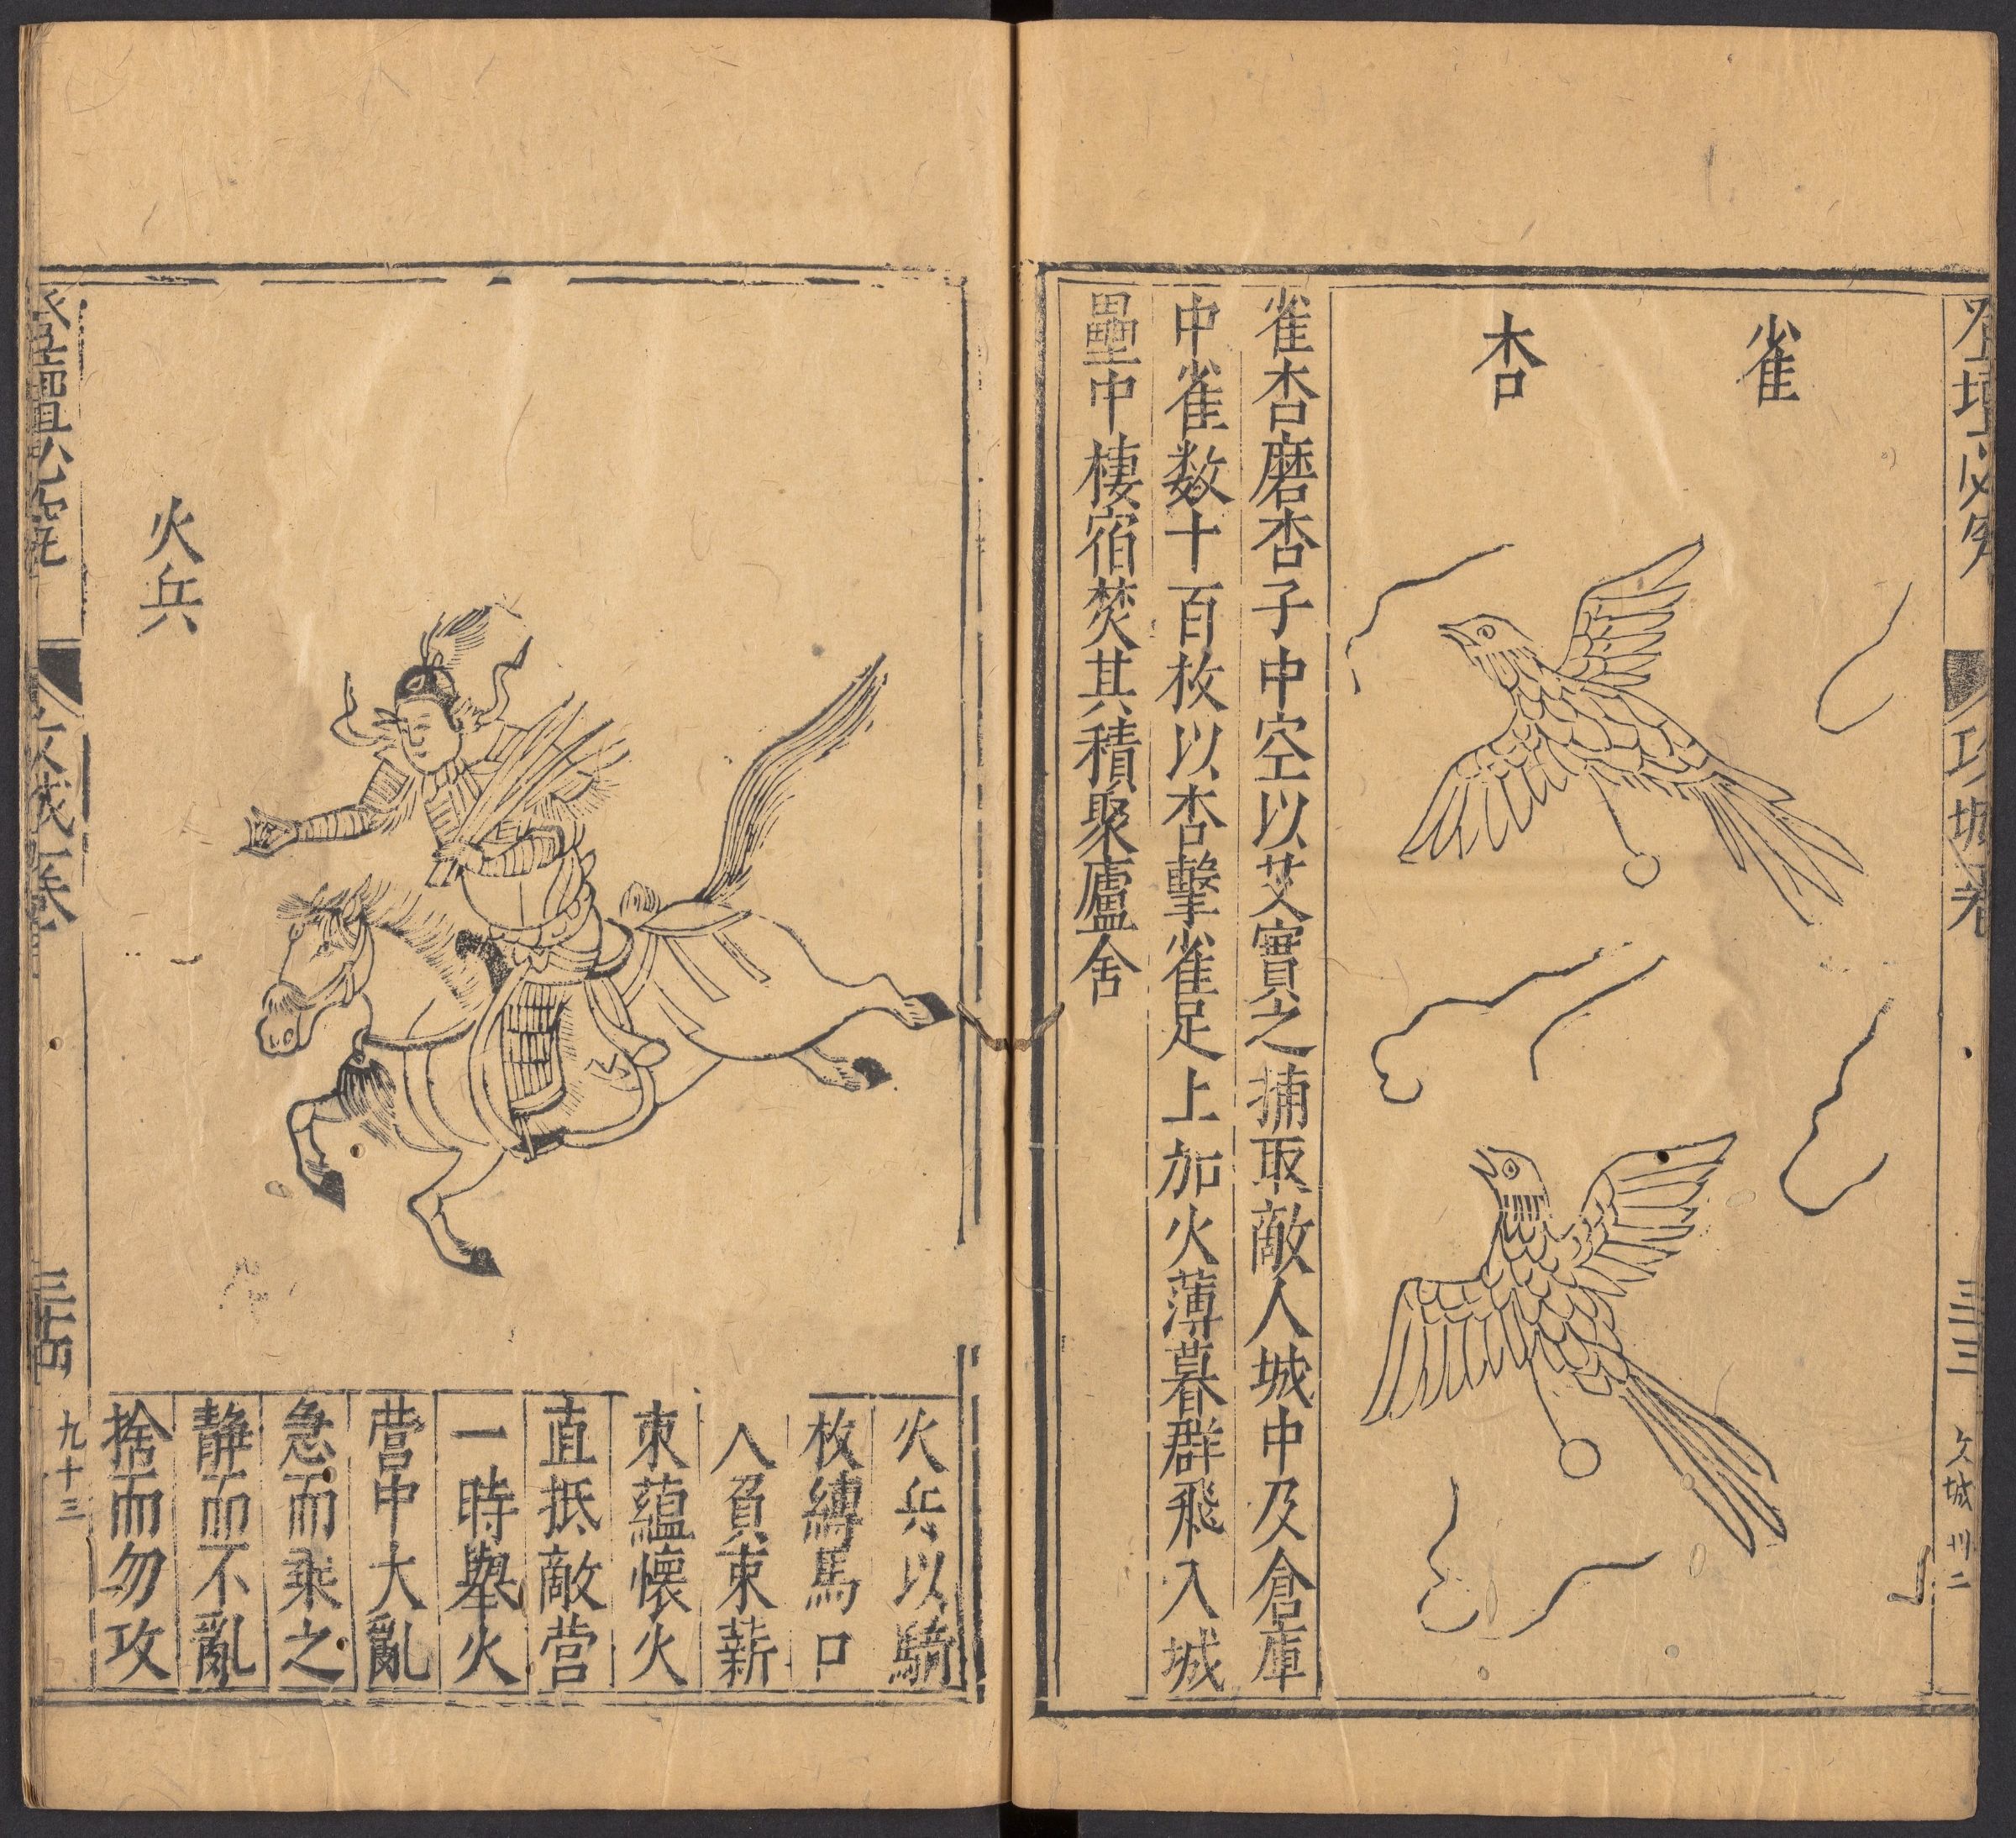 雀
杏
雀杏磨杏子中空以艾實之捕取敵人城中及倉庫
中雀数十百枚以杏擊雀足上加火薄暮群飛入城
壘中棲宿焚其積聚廬舍
三三
火兵以騎
枚縛馬口
人負束薪
束蘊懷火
直抵敵营
一時舉火
营中大亂
急而乘之
静而不亂
捨而勿攻
火兵
三十四
九十三